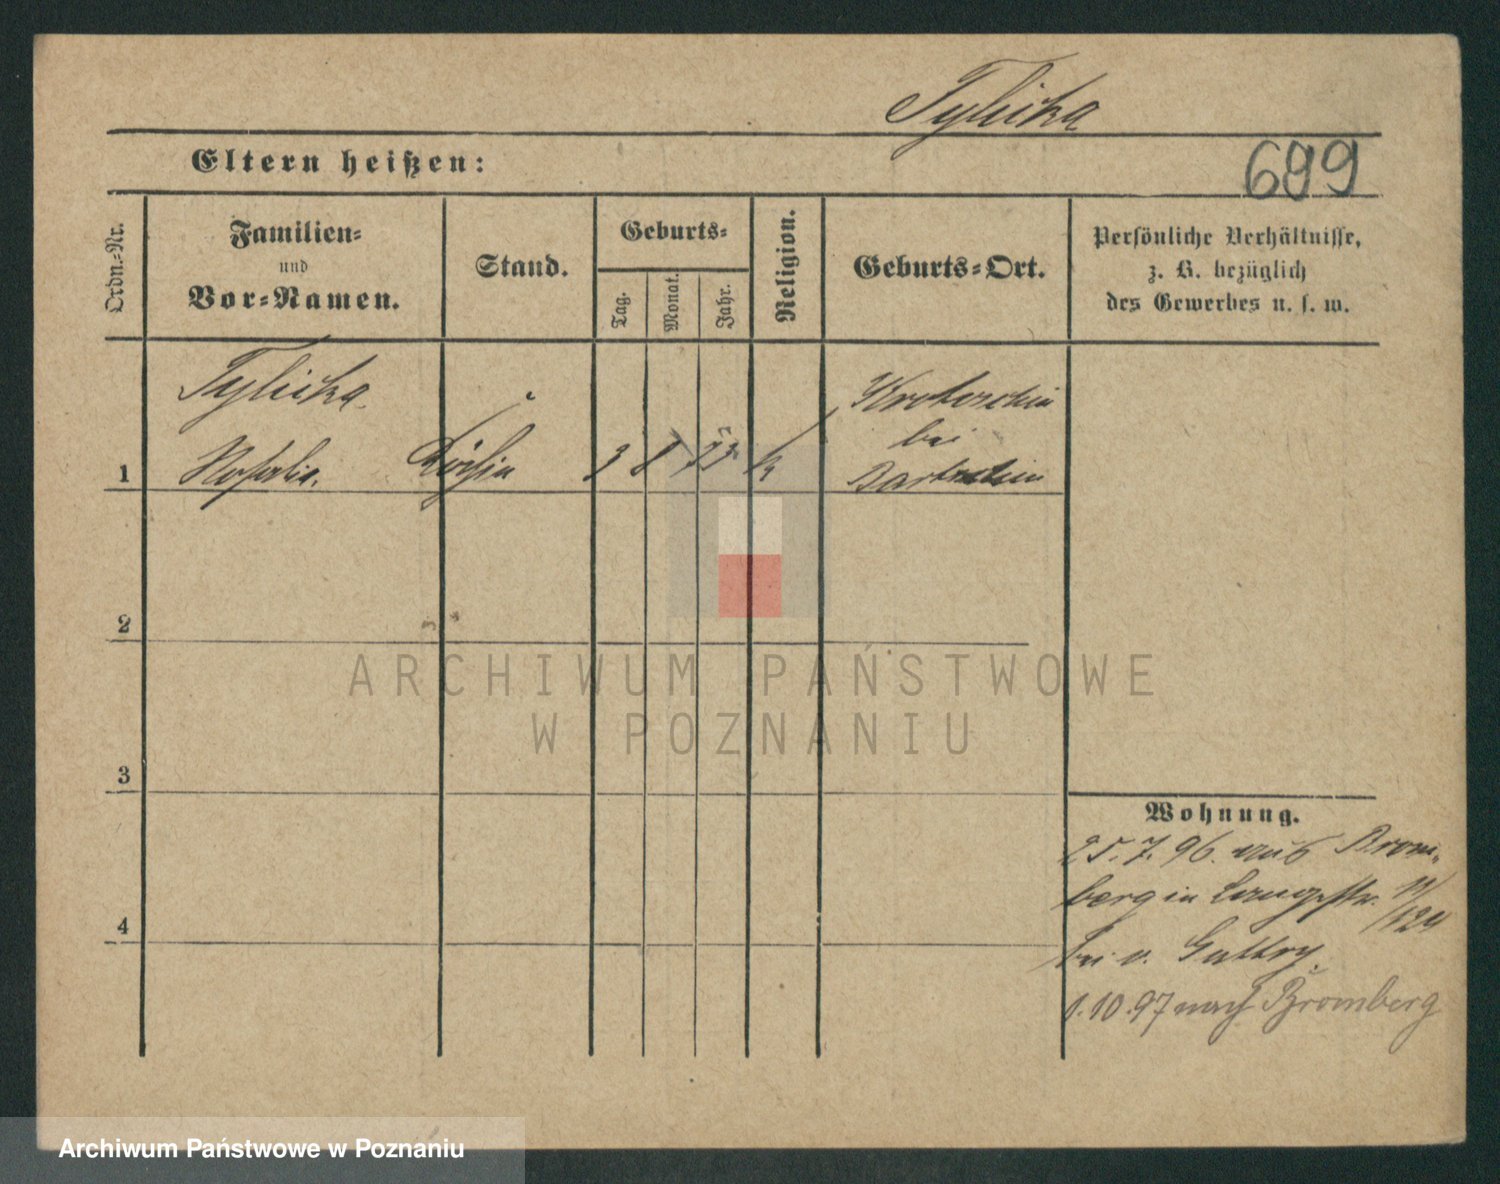 Tylicka
Eltern heißen:
699
Ordn.-Nr.
Familien-
und
Vor-Namen.
Stand.
Geburts-
Tag.
Monat.
Jahr.
Religion.
Geburts-Ort.
Persönliche Verhältnisse,
z. B. bezüglich
des Gewerbes u. s. w.
Tylicka
Krotoschin
bei
1
Rosalia.
Köchin
3 8 73 k
Bartschin
2
3
4
Wohnung.
25. 7. 96. aus Brom-
berg in Langestr. 11/124
bei v. Guttry.
1. 10. 97 nach Bromberg
ARCHIWUM PAŃSTWOWE
W POZNANIU
Archiwum Państwowe w Poznaniu